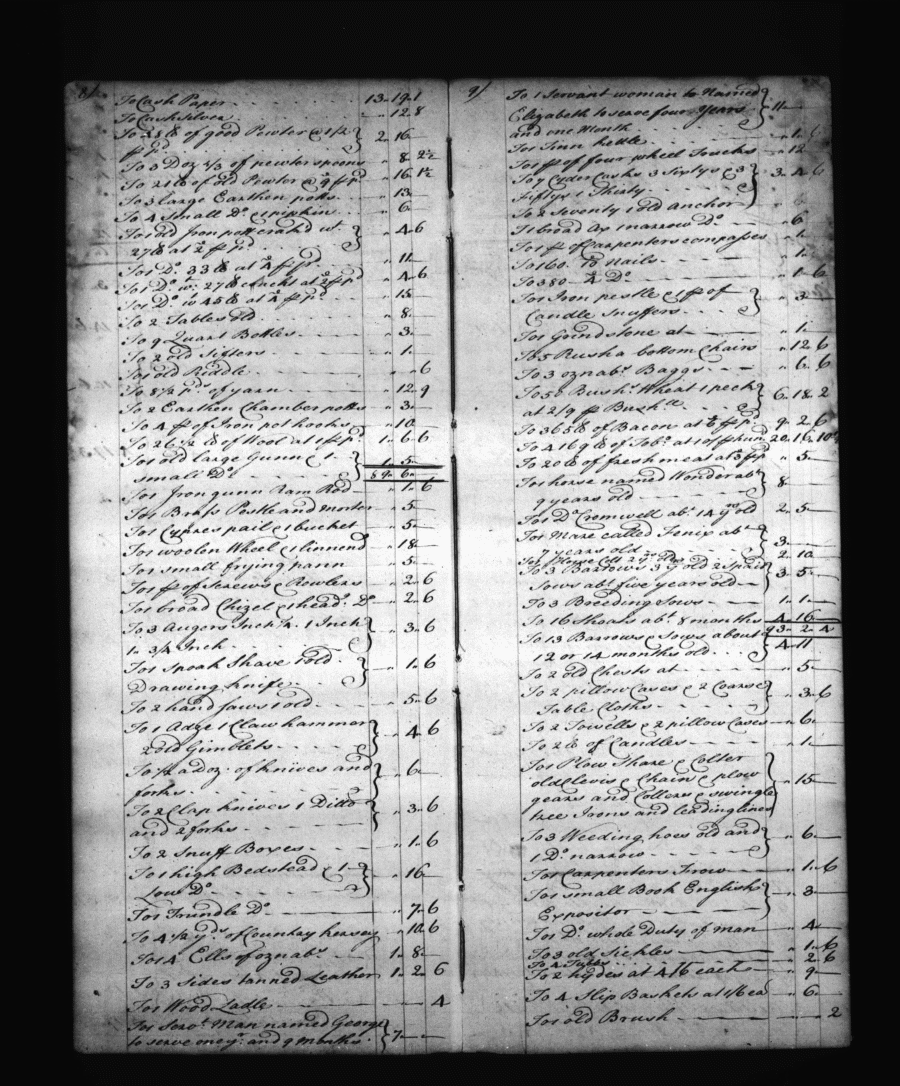 8/
To Cash Paper 13 " 19 " 1
To Cash Silver " 12 " 8
To 28 lb of good Pewter @ 1/2 2 " 16
To 3 Doz 1/3 of pewter spoons " 8 " 2½
To 21 lb of old Pewter @ 9 " 16 " 1½
To 3 large Earthen potts " 13
To 4 Small Do. 1 pipkin " 6
To 1 old Iron pott cracked wt.
27 lb at 2 " 4 " 6
To 1 Do. 33 lb at 4 " 11
To 1 Do. wt. 27 lb crackt at 2 " 4 " 6
To 1 Do. wt 45 lb at 4 " 15
To 2 Tables old " 8
To 9 Quart Bottles " 3
To 2 old Sifters " 1
To 1 old Riddle " " 6
To 8½ pd. of yarn " 12 " 9
To 2 Earthen Chamber potts " 3
To 4 pr of Iron pot hooks " 10
To 26½ lb of Wool at 1 1 " 6 " 6
To 1 old large Gunn & 1
small Do. 1 " 5
89 " 6
To 1 Iron gunn Ram Rod " 1 " 6
To 1 Brass Pestle and mortar " 5
To 1 Cypres pail & 1 bucket " 5
To 1 woolen Wheel & 1 linnend " 18
To 1 small frying pann " 5
To 1 pr of Screws & Rowlers " 2 " 6
To 1 broad Chizel & 1 head Do. " 2 " 6
To 3 Augers Inch ¼. 1 Inch
1 " 3/4 Inch " 3 " 6
To 1 Spoak Shave 1 old
Drawing knife " 1 " 6
To 2 hand saws 1 old " 5 " 6
To 1 Adze 1 Claw hammor
2 old Gimblets " 4 " 6
To ½ a doz. of knives and
forks " 6
To 2 Clap knives 1 Ditto
and 2 forks " 3 " 6
To 2 Snuff Boxes " 1 " 6
To 1 high Bedstead & 1
Low Do. " 16
To 1 Trundle Do. " 7 " 6
To 4½ yds. of Country kersey " 10 " 6
To 14 Ells of oznabs. 1 " 8
To 3 Sides tanned Leather 1 " 2 " 6
To 1 Wood Ladle " " 4
To 1 Servt. Man named George
to serve one yr. and 9 months 7
9/
To 1 Servant woman to Named
Elizabeth to serve four Years
and one Month 11
To 1 Tinn kettle " 1
To 1 pr of four wheel Trucks " 12
To 7 Cyder Casks 3 Sixtys & 3
Fiftys 1 Thirty 3 " 4 " 6
To 2 Seventy 1 old Anchor
To 1 broad Ax 1 narrow Do. " 6
To 1 pr of Carpenters compasses " 1
To 160 nails " 1
To 380 Do. " 1 " 6
To 1 Iron pestle & 1 pr of
Candle Snuffers " 3
To 1 Grindstone at " 1
To 5 Rush a bottom Chairs " 12 " 6
To 3 oznabs. Baggs " 6 " 6
To 50 Bushs. Wheat 1 peck
at 2/9 pr Bushll. 6 " 18 " 2
To 365 lb of Bacon at 6 9 " 2 " 6
To 4169 lb of Tobo. at 10/ pr hund 20 " 16 " 10
To 20 lb of fresh meat at 3 " 5
To 1 horse named Wonder abt.
9 years old 8
To 1 Do. Cremwell abt. 14 yrs old 2 " 5
To 1 Mare called Fenix abt
7 years old 3
To 1 Horse Colt 2 yrs 2 " 10
To 3 Barrows 3 yr old 2 Spaid
Sows abt. five years old 3 " 5
To 3 Breeding Sows 1 " 1
To 16 Shoats abt. 8 months 4 " 16
93 " 2 " 4
To 13 Barrows & Sows about
12 or 14 months old 4 " 11
To 2 old Chests at " 5
To 2 pillow Cases & 2 Coarse
Table Cloths " 3 " 6
To 2 Towells & 2 pillow Cases " 6
To 2 lb of Candles " 1
To 1 Plow Share & Colter
old Clevis & Chain & plow
gears and Collers & swingle
tree Irons and leading lines " 15
To 3 Weeding hoes old and
1 Do. narrow " 6
To 1 Carpenters Frow " 1 " 6
To 1 small Book English
Expositor " 3
To 1 Do. whole Duty of Man " 4
To 3 old Sickles " 1 " 6
To 4 Tubbs " 2 " 6
To 2 hydes at 4/6 each " 9
To 4 Slip Baskets at 1/6 ea " 6
To 1 old Brush " " 2